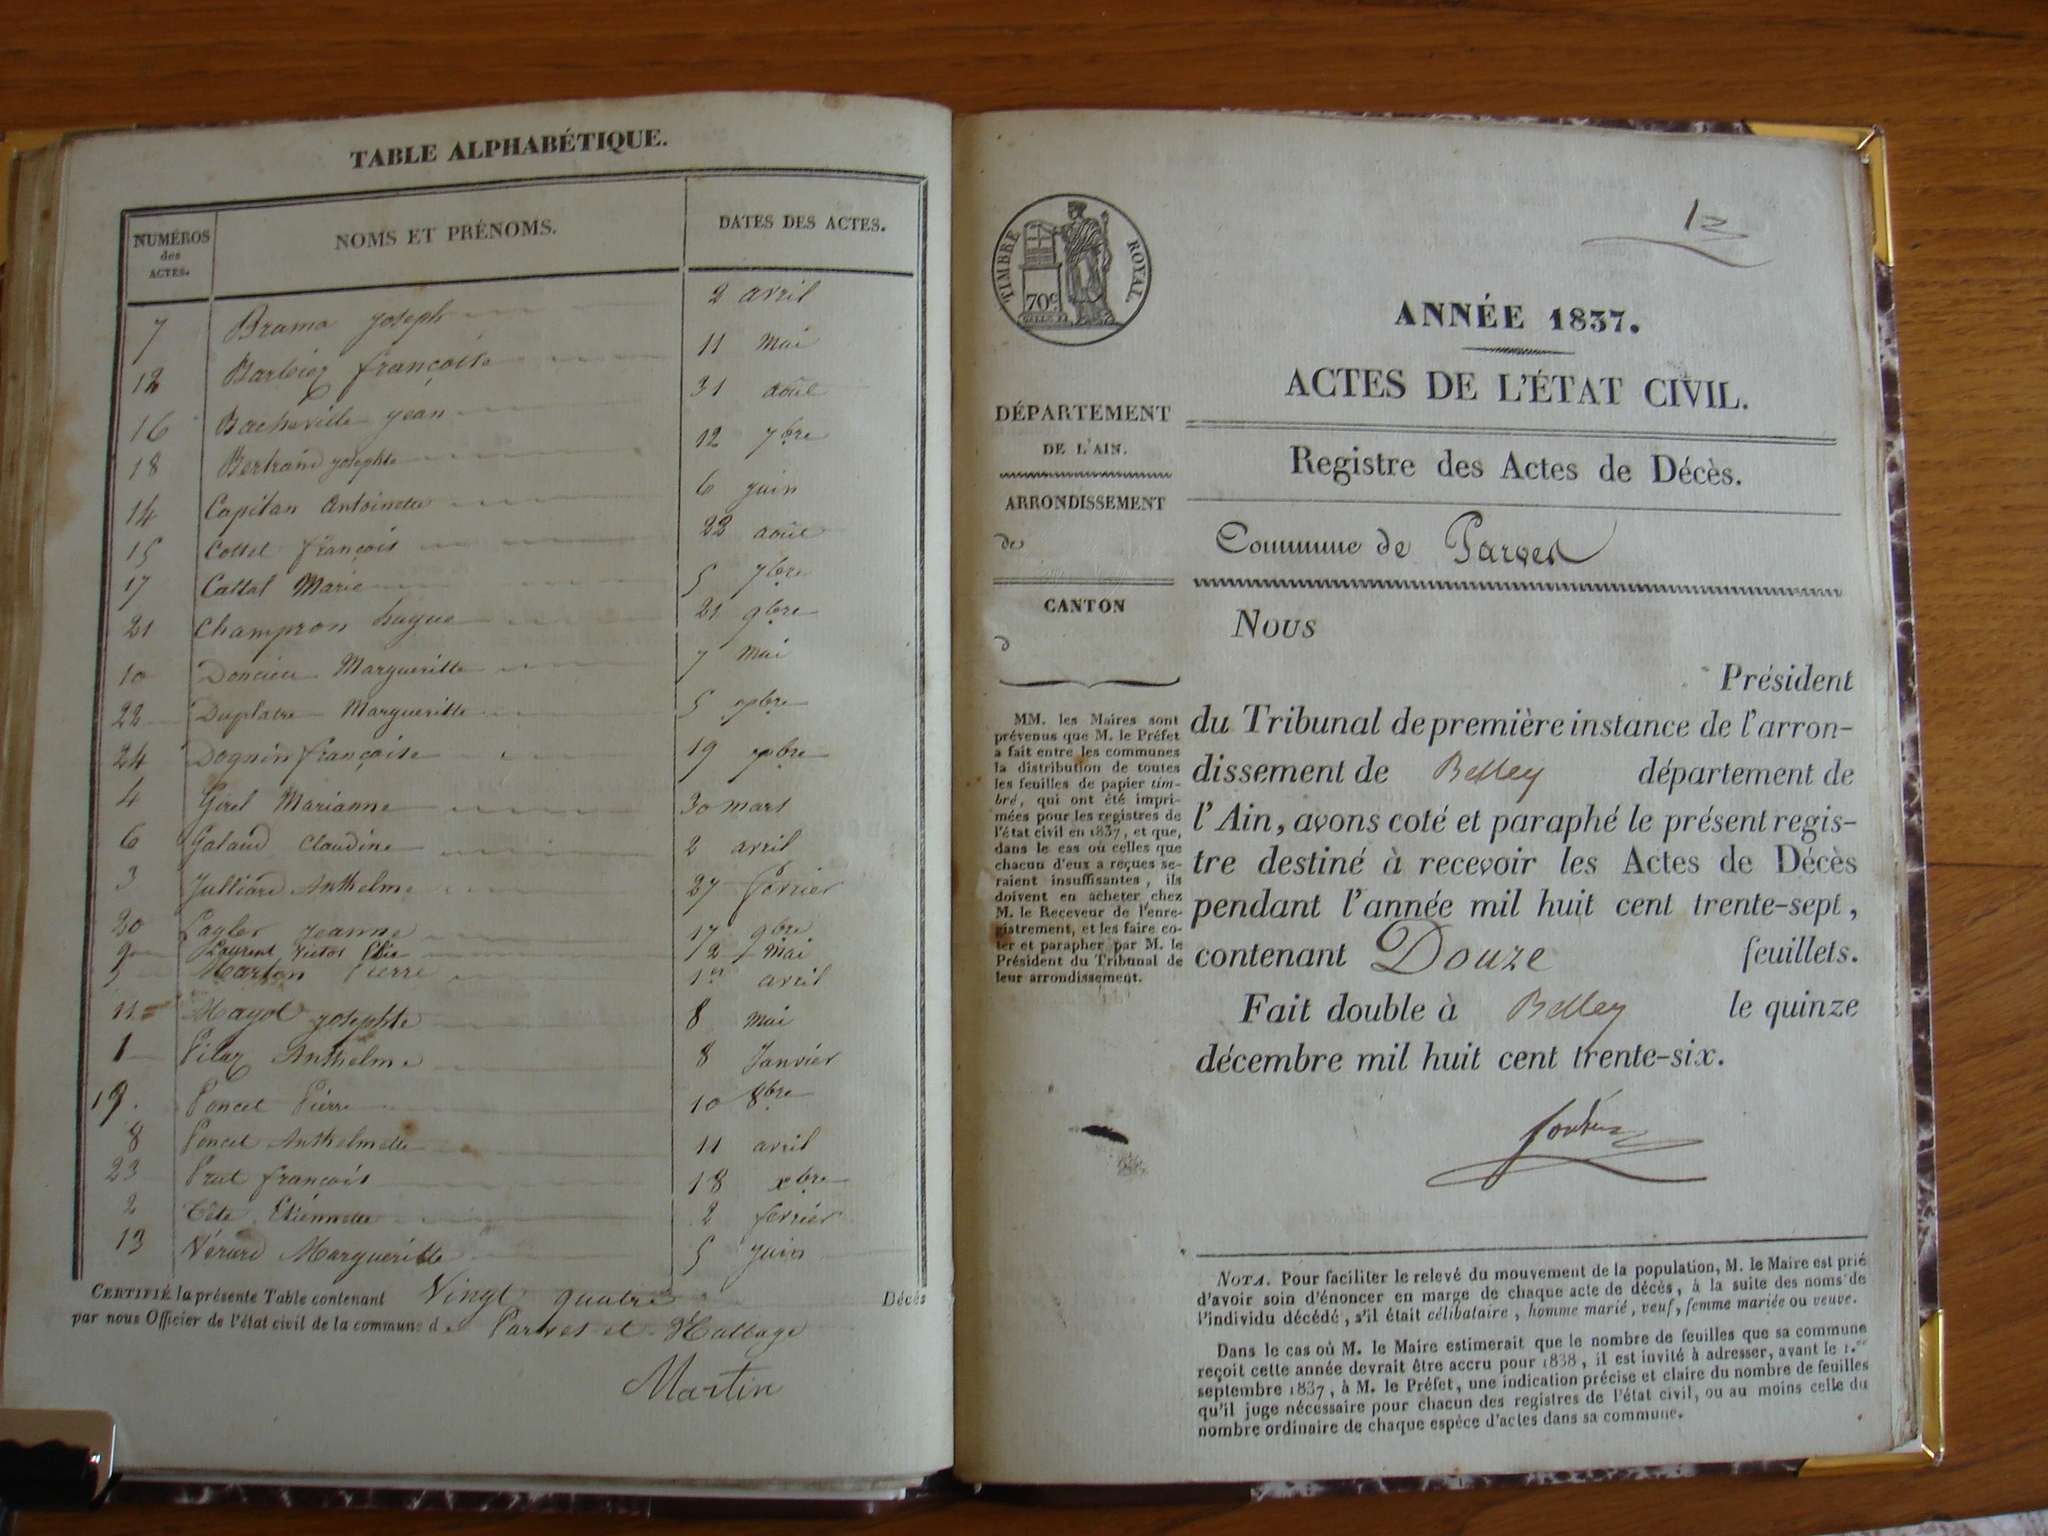 TABLE ALPHABÉTIQUE.
NUMÉROS des ACTES. NOMS ET PRÉNOMS. DATES DES ACTES.
7 Brama Joseph 2 avril
12 Barbier françoise 11 mai
16 Bacheville Jean 31 août
18 Bertrand Josephte 12 7bre
14 Capitan Antoinette 6 juin
15 Cottel françois 22 août
17 Cattal Marie 5 7bre
21 Champron hugue 21 9bre
10 Doncieu Margueritte 7 mai
22 Duplatre Margueritte 5 xbre
24 Dognin françoise 19 xbre
4 Girel Marianne 30 mars
6 Galaud Claudine 2 avril
3 Julliard Anthelme 27 février
20 Lagler Jeanne 17 9bre
9 Laurent Victor Elie 12 Mai
5 Marton Pierre 1er avril
11 Mayol Josephte 8 mai
1 Pilaz Anthelme 8 Janvier
19. Poncet Pierre 10 8bre
8 Poncet Anthelmette 11 avril
23 Prat françois 18 xbre
2 Tête Etiennette 2 février
13 Vérard Margueritte 5 Juin
CERTIFIÉ la présente Table contenant Vingt quatre Décès
par nous Officier de l'état civil de la commune de Parves et
Martin
12
TIMBRE ROYAL
70c
ANNÉE 1837.
ACTES DE L'ÉTAT CIVIL.
DÉPARTEMENT
DE L'AIN.
ARRONDISSEMENT
de
CANTON
d
MM. les Maires sont
prévenus que M. le Préfet
a fait entre les communes
la distribution de toutes
les feuilles de papier tim-
bré, qui ont été impri-
mées pour les registres de
l'état civil en 1837, et que,
dans le cas où celles que
chacun d'eux a reçues se-
raient insuffisantes, ils
doivent en acheter chez
M. le Receveur de l'enre-
gistrement, et les faire co-
ter et parapher par M. le
Président du Tribunal de
leur arrondissement.
Registre des Actes de Décès.
Commune de Parves
Nous
Président
du Tribunal de première instance de l'arron-
dissement de Belley département de
l'Ain, avons coté et paraphé le présent regis-
tre destiné à recevoir les Actes de Décès
pendant l'année mil huit cent trente-sept,
contenant Douze feuillets.
Fait double à Belley le quinze
décembre mil huit cent trente-six.
NOTA. Pour faciliter le relevé du mouvement de la population, M. le Maire est prié
d'avoir soin d'énoncer en marge de chaque acte de décès, à la suite des noms de
l'individu décédé, s'il était célibataire, homme marié, veuf, femme mariée ou veuve.
Dans le cas où M. le Maire estimerait que le nombre de feuilles que sa commune
reçoit cette année devrait être accru pour 1838, il est invité à adresser, avant le 1.er
septembre 1837, à M. le Préfet, une indication précise et claire du nombre de feuilles
qu'il juge nécessaire pour chacun des registres de l'état civil, ou au moins celle du
nombre ordinaire de chaque espèce d'actes dans sa commune.